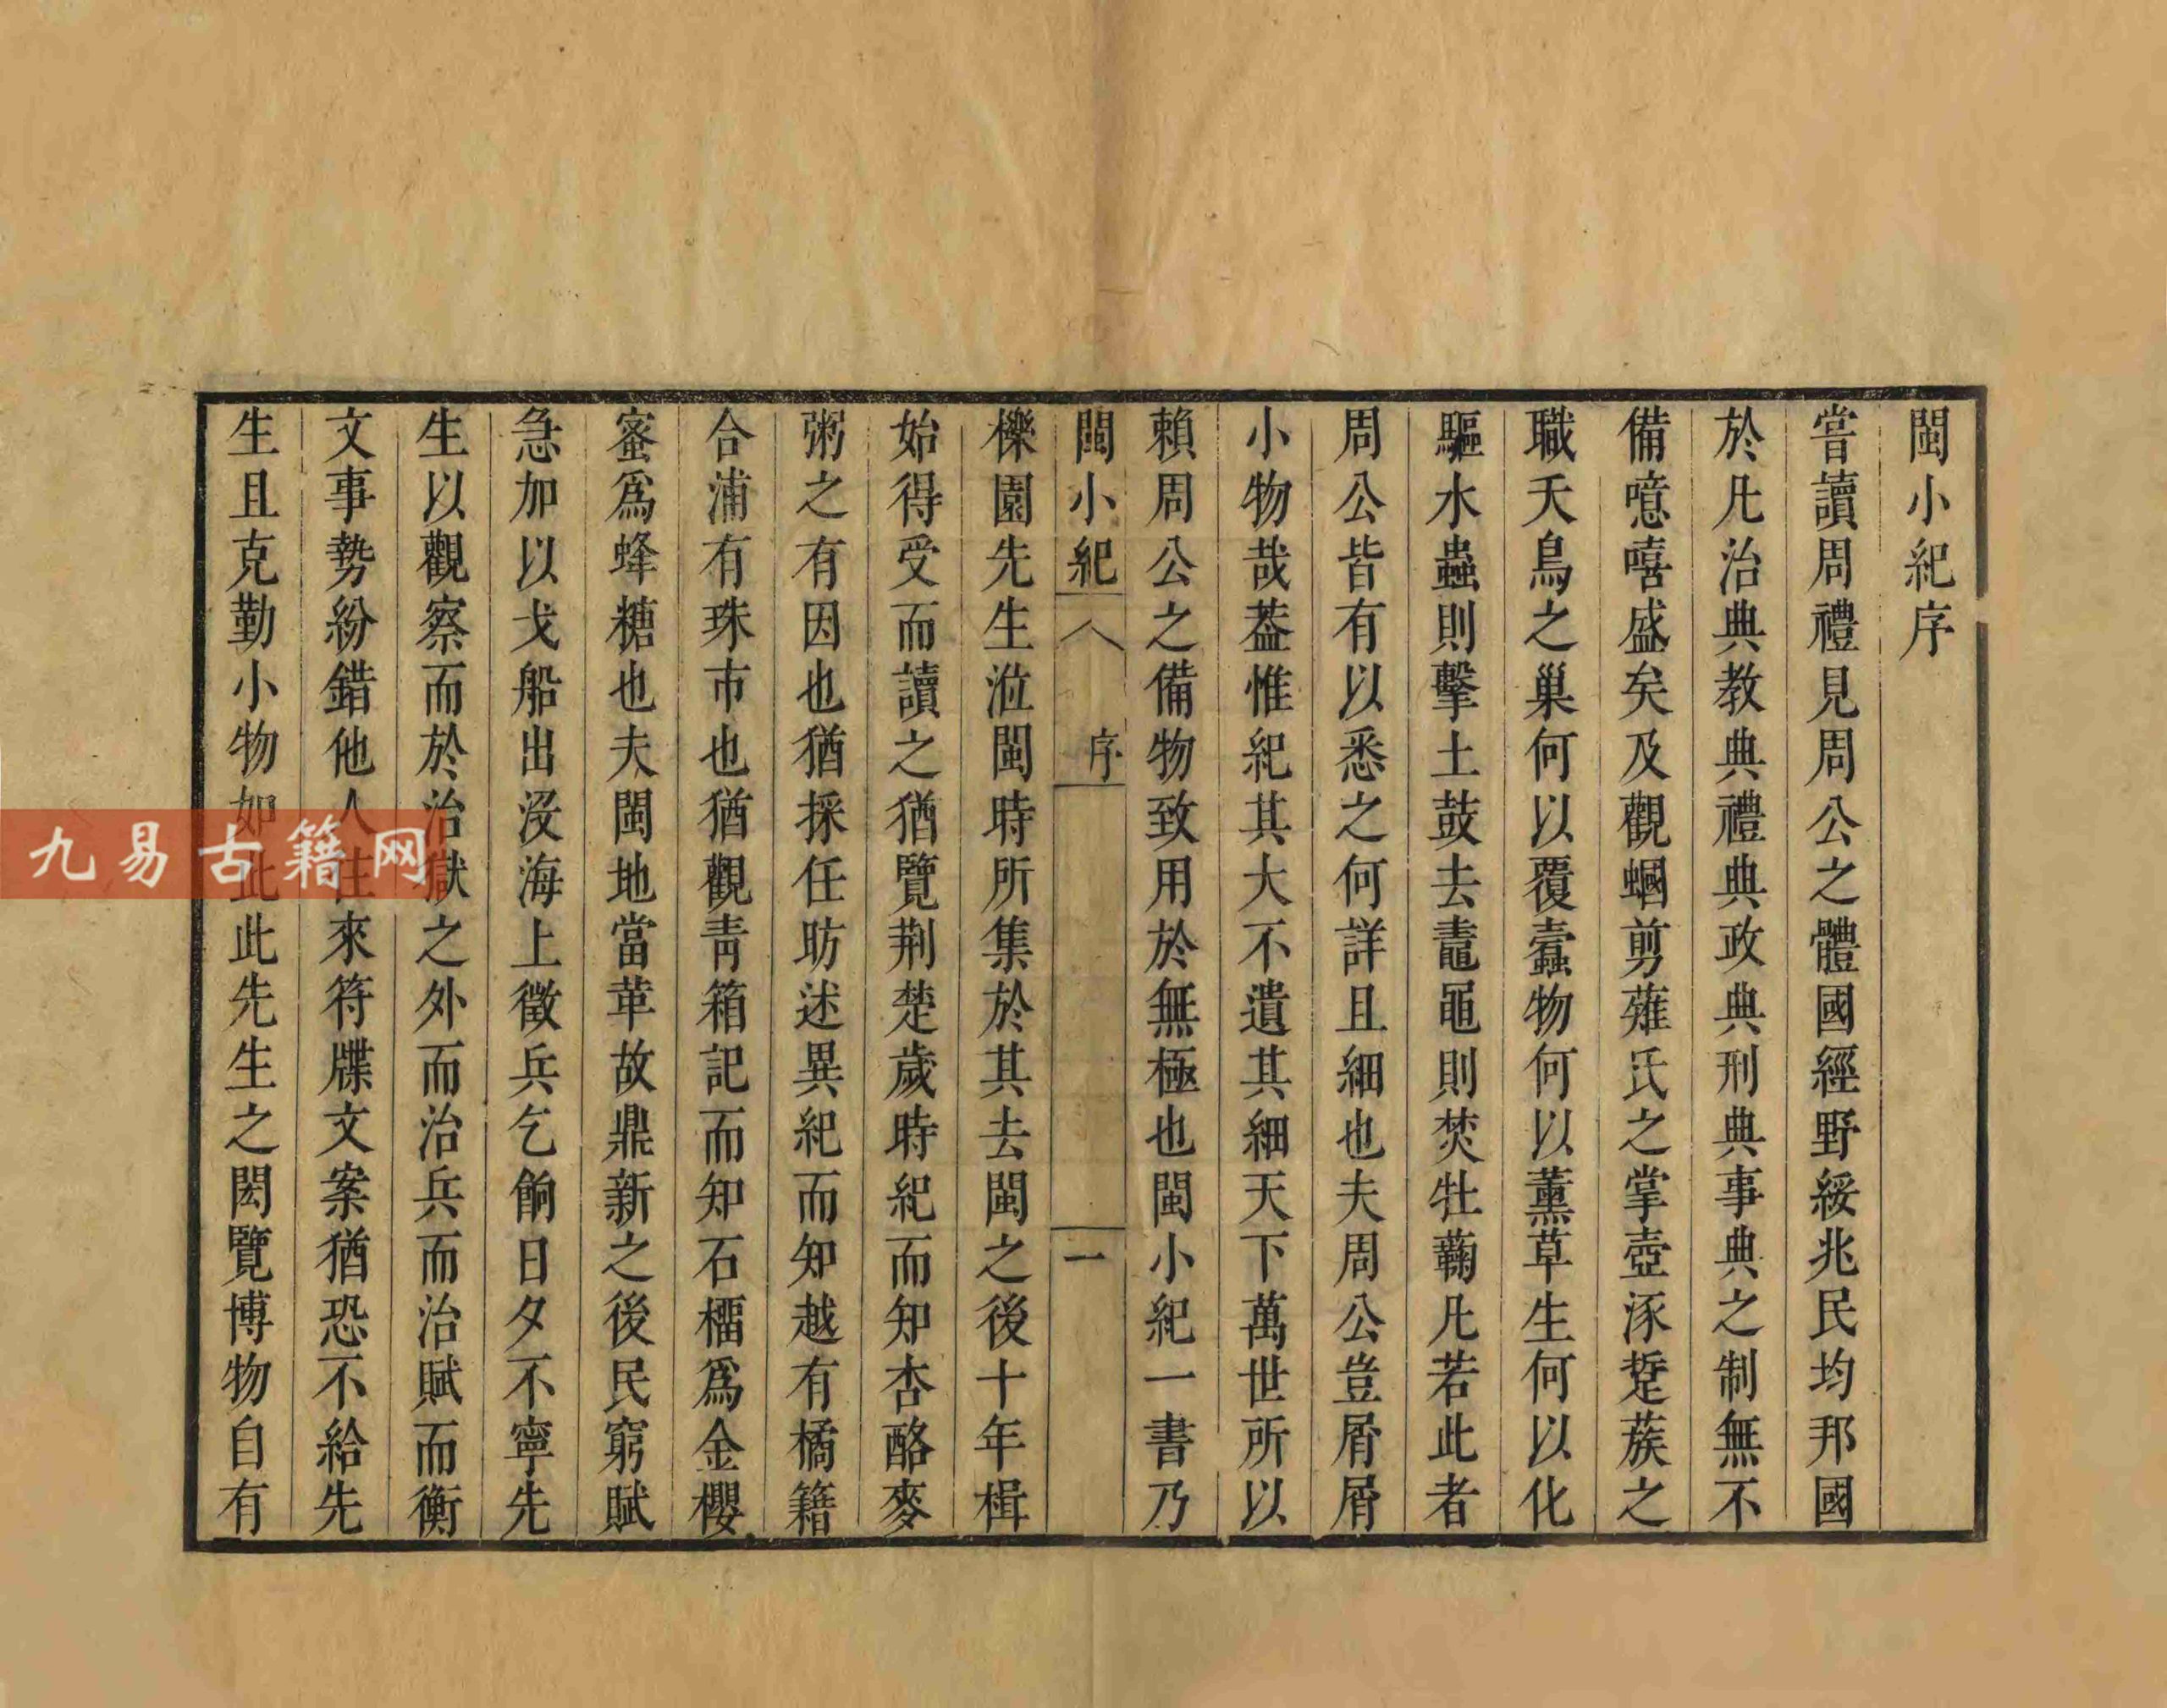 閩小紀序
嘗讀周禮見周公之體國經野綏兆民均邦國
於凡治典教典禮典政典刑典事典之制無不
備噫嘻盛矣及觀蟈剪薙氏之掌壺涿硩蔟之
職夭鳥之巢何以覆蠹物何以薰草生何以化
驅水蟲則擊土鼓去鼃黽則焚牡蘜凡若此者
周公皆有以悉之何詳且細也夫周公豈屑屑
小物哉葢惟紀其大不遺其細天下萬世所以
賴周公之備物致用於無極也閩小紀一書乃
閩小紀 序 一
櫟園先生涖閩時所集於其去閩之後十年楫
始得受而讀之猶覽荆楚歲時紀而知杏酪麥
粥之有因也猶採任昉述異紀而知越有橘籍
合浦有珠市也猶觀青箱記而知石橊爲金櫻
蜜爲蜂糖也夫閩地當革故鼎新之後民窮賦
急加以戈船出沒海上徵兵乞餉日夕不寧先
生以觀察而於治獄之外而治兵而治賦而衡
文事勢紛錯他人往來符牒文案猶恐不給先
生且克勤小物如此此先生之閎覽博物自有
九易古籍网